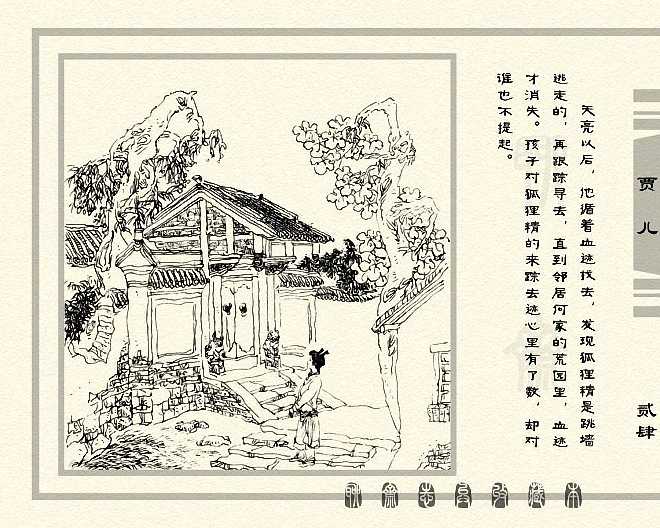 贾儿
贰肆
天亮以后，他循着血迹找去，发现狐狸精是跳墙
逃走的，再跟踪寻去，直到邻居何家的荒园里，血迹
才消失。孩子对狐狸精的来踪去迹心里有了数，却对
谁也不提起。